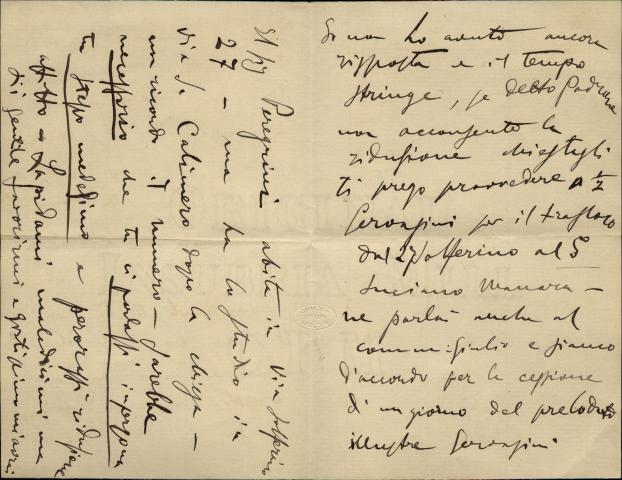 Io non ho avuto ancora
risposta e il tempo
stringe, se detto Padrone
non acconsente la
riduzione chiestagli
ti prego provvedere a 1/2
Gervasini per il trasloco
dal 27 Solferino al 5
Luciano Manara –
ne parlai anche al
comm: Giulio e siamo
d'accordo per la cessione
d'un giorno del prelodato
illustre Gervasini
Il sig Peregrini abita in via Solferino
27 – ma ha lo studio in
via S. Calimero dopo la chiesa –
un ricordo il numero – sarebbe
necessario che tu ci parlassi in persona
tu stesso medesimo e perorassi riduzione
affitto – Lapidami maledicimi ma
sii gentile favorirmi e